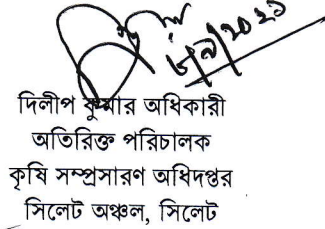 ৮/৯/২০২১
দিলীপ কুমার অধিকারী
অতিরিক্ত পরিচালক
কৃষি সম্প্রসারণ অধিদপ্তর
সিলেট অঞ্চল, সিলেট